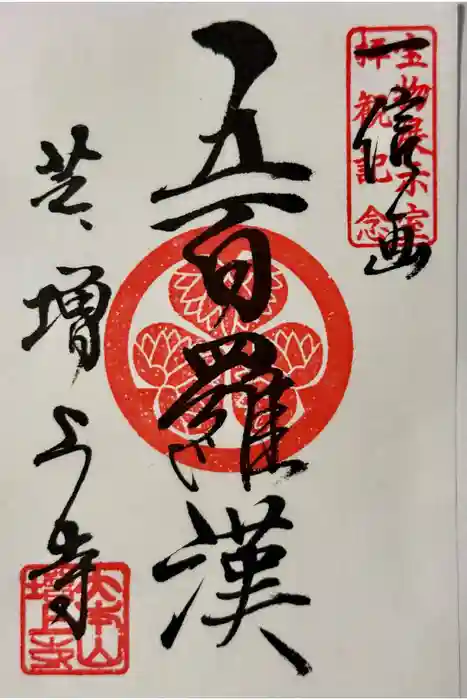 一信画
宝物展示室
拝観記念
五百羅漢
芝、増上寺
大本山
増上寺